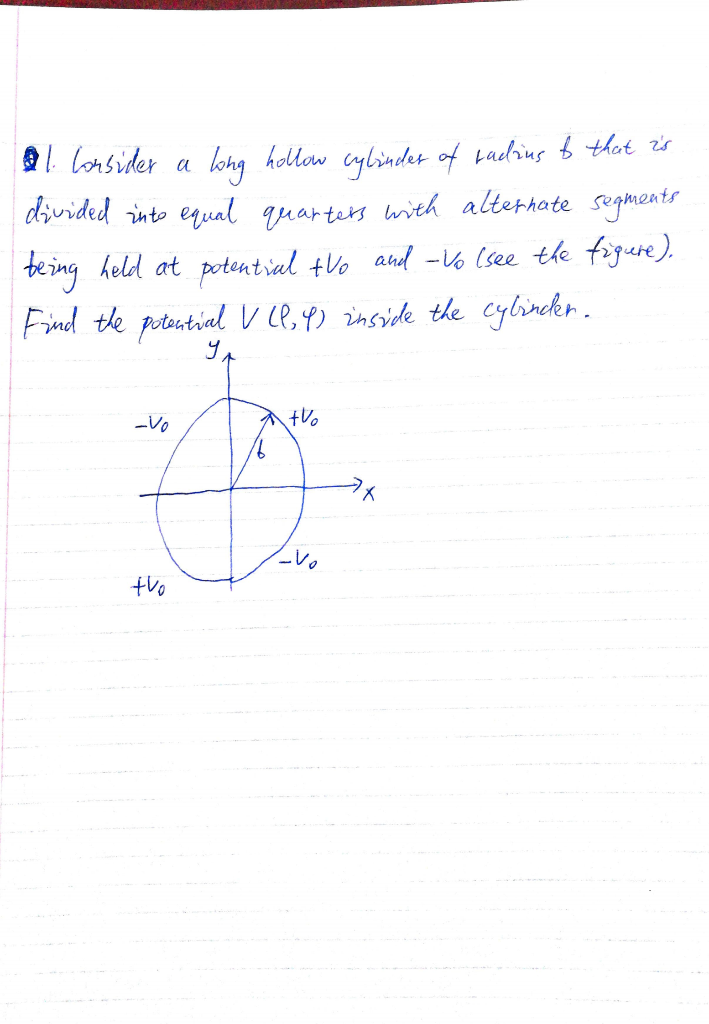 1. Consider a long hollow cylinder of radius b that is
divided into equal quarters with alternate segments
being held at potential +V₀ and -V₀ (see the figure).
Find the potential V (ρ, φ) inside the cylinder.
y
-V₀ +V₀
b
x
-V₀
+V₀